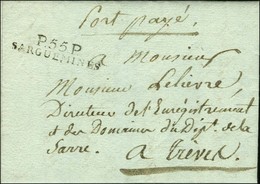 Port payé
P.55.P
SARGUEMINES
A Monsieur
Monsieur Lelievre
Directeur de l'Enregistrement
et des Domaines du Dépt. de la
Sarre.
a Trèves.